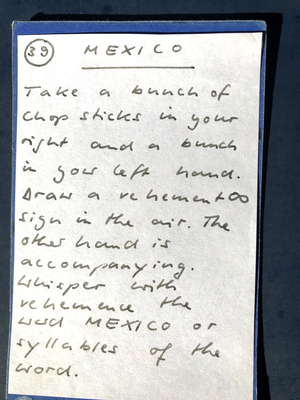 39 MEXICO
Take a bunch of
chop sticks in your
right and a bunch
in your left hand.
Draw a vehement ∞
sign in the air. The
other hand is
accompanying.
Whisper with
vehemence the
word MEXICO or
syllables of the
word.